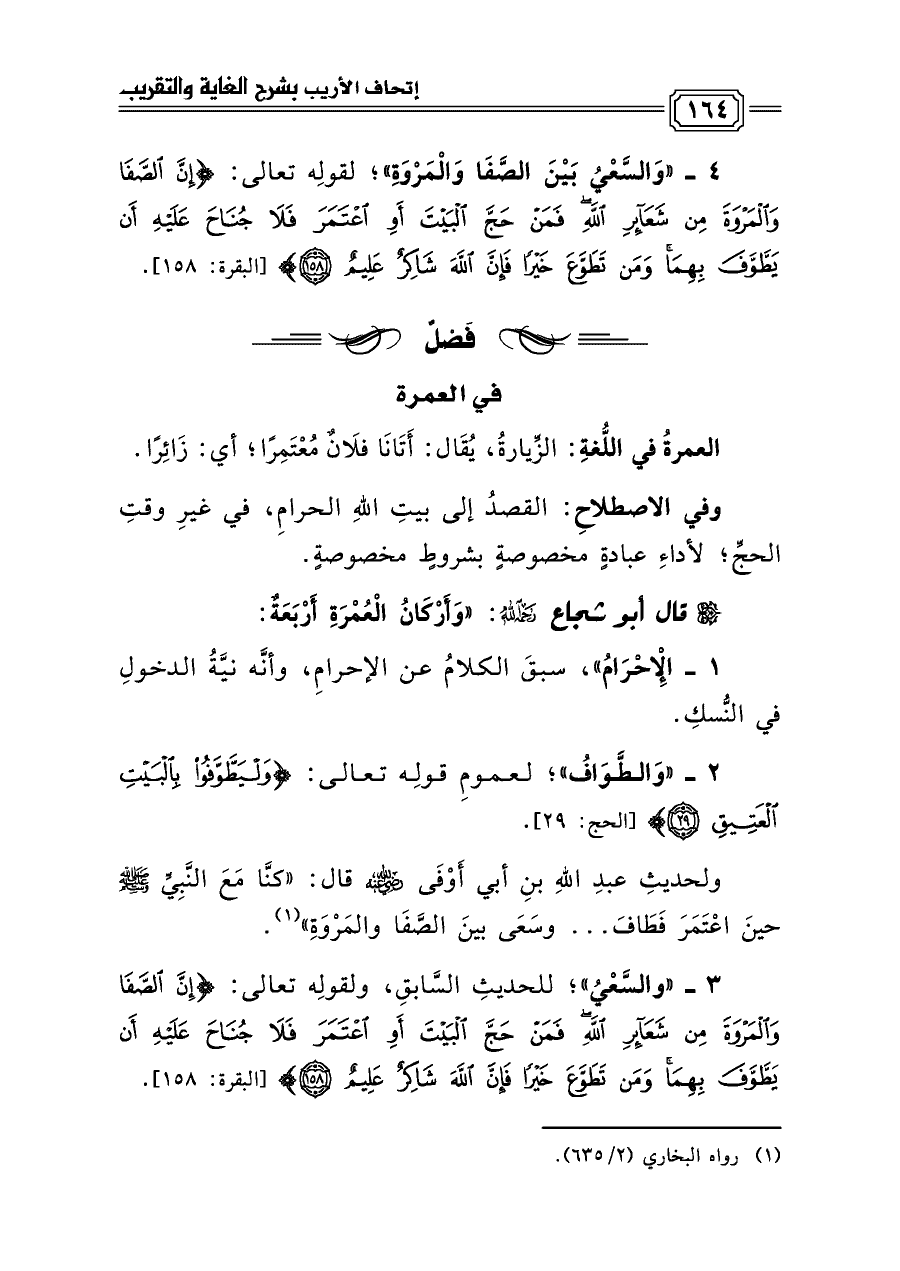 إتحاف الأريب بشرح الغاية والتقريب
١٦٤
٤ ـ «وَالسَّعْيُ بَيْنَ الصَّفَا وَالْمَرْوَةِ»؛ لقولِه تعالى: ﴿إِنَّ ٱلصَّفَا
وَٱلْمَرْوَةَ مِن شَعَآئِرِ ٱللَّهِۖ فَمَنْ حَجَّ ٱلْبَيْتَ أَوِ ٱعْتَمَرَ فَلَا جُنَاحَ عَلَيْهِ أَن
يَطَّوَّفَ بِهِمَاۚ وَمَن تَطَوَّعَ خَيْرًا فَإِنَّ ٱللَّهَ شَاكِرٌ عَلِيمٌ ١٥٨﴾ [البقرة: ١٥٨].
فَصْلٌ
في العمرة
العمرةُ في اللُّغةِ: الزِّيارةُ، يُقَال: أَتَانَا فلَانٌ مُعْتَمِرًا؛ أي: زَائِرًا.
وفي الاصطلاحِ: القصدُ إلى بيتِ اللهِ الحرامِ، في غيرِ وقتِ
الحجِّ؛ لأداءِ عبادةٍ مخصوصةٍ بشروطٍ مخصوصةٍ.
قال أبو شجاع رَحِمَهُ اللَّهُ: «وَأَرْكَانُ الْعُمْرَةِ أَرْبَعَةٌ:
١ ـ الْإِحْرَامُ»، سبقَ الكلامُ عن الإحرامِ، وأنَّه نيَّةُ الدخولِ
في النُّسكِ.
٢ ـ «وَالطَّوَافُ»؛ لعمومِ قولِه تعالى: ﴿وَلْيَطَّوَّفُوا۟ بِٱلْبَيْتِ
ٱلْعَتِيقِ ٢٩﴾ [الحج: ٢٩].
ولحديثِ عبدِ اللهِ بنِ أبي أَوْفَى رَضِيَ اللَّهُ عَنْهُ قال: «كنَّا مَعَ النَّبِيِّ ﷺ
حينَ اعْتَمَرَ فَطَافَ... وسَعَى بينَ الصَّفَا والمَرْوَةِ»(١).
٣ ـ «والسَّعْيُ»؛ للحديثِ السَّابقِ، ولقولِه تعالى: ﴿إِنَّ ٱلصَّفَا
وَٱلْمَرْوَةَ مِن شَعَآئِرِ ٱللَّهِۖ فَمَنْ حَجَّ ٱلْبَيْتَ أَوِ ٱعْتَمَرَ فَلَا جُنَاحَ عَلَيْهِ أَن
يَطَّوَّفَ بِهِمَاۚ وَمَن تَطَوَّعَ خَيْرًا فَإِنَّ ٱللَّهَ شَاكِرٌ عَلِيمٌ ١٥٨﴾ [البقرة: ١٥٨].
(١) رواه البخاري (٢/ ٦٣٥).